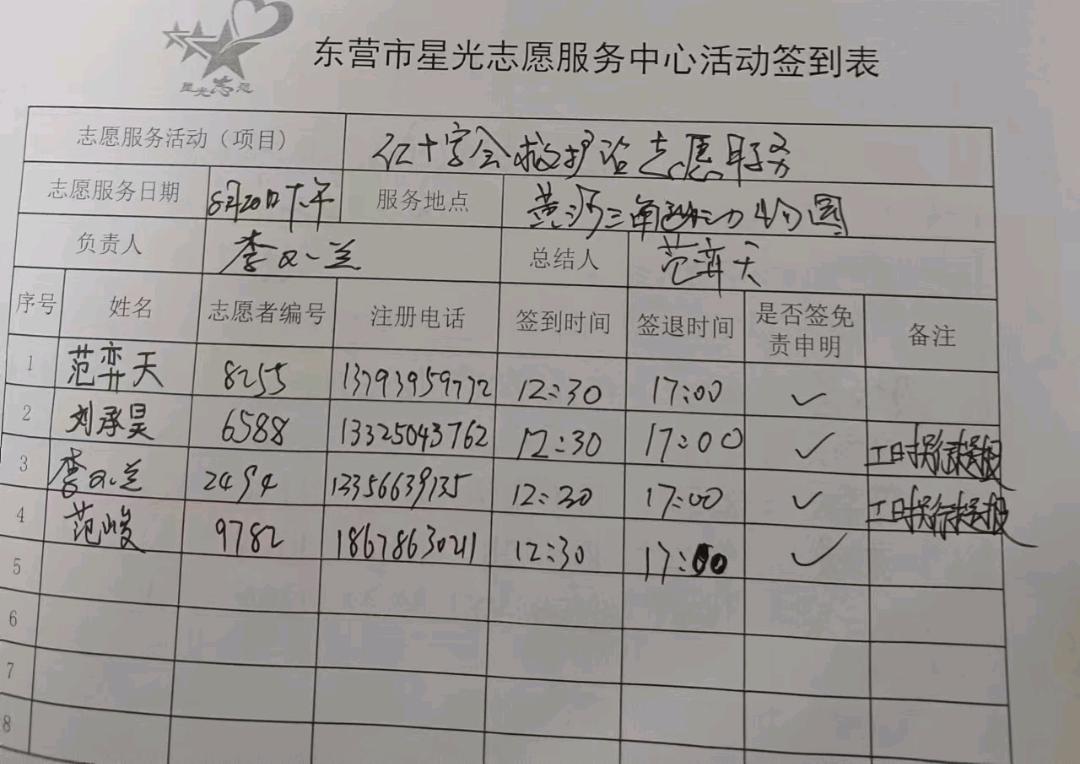 星光志愿
东营市星光志愿服务中心活动签到表
志愿服务活动（项目） 红十字会救护站志愿服务
志愿服务日期 8月20日下午 服务地点 黄河三角洲动物园
负责人 李又兰 总结人 范弈天
序号 姓名 志愿者编号 注册电话 签到时间 签退时间 是否签免责申明 备注
1 范弈天 8255 13793959772 12:30 17:00 ✓
2 刘承昊 6588 13325043762 12:30 17:00 ✓ 工时另行提报
3 李又兰 2494 13356639135 12:30 17:00 ✓ 工时另行提报
4 范峻 9782 18678630211 12:30 17:00 ✓
5
6
7
8